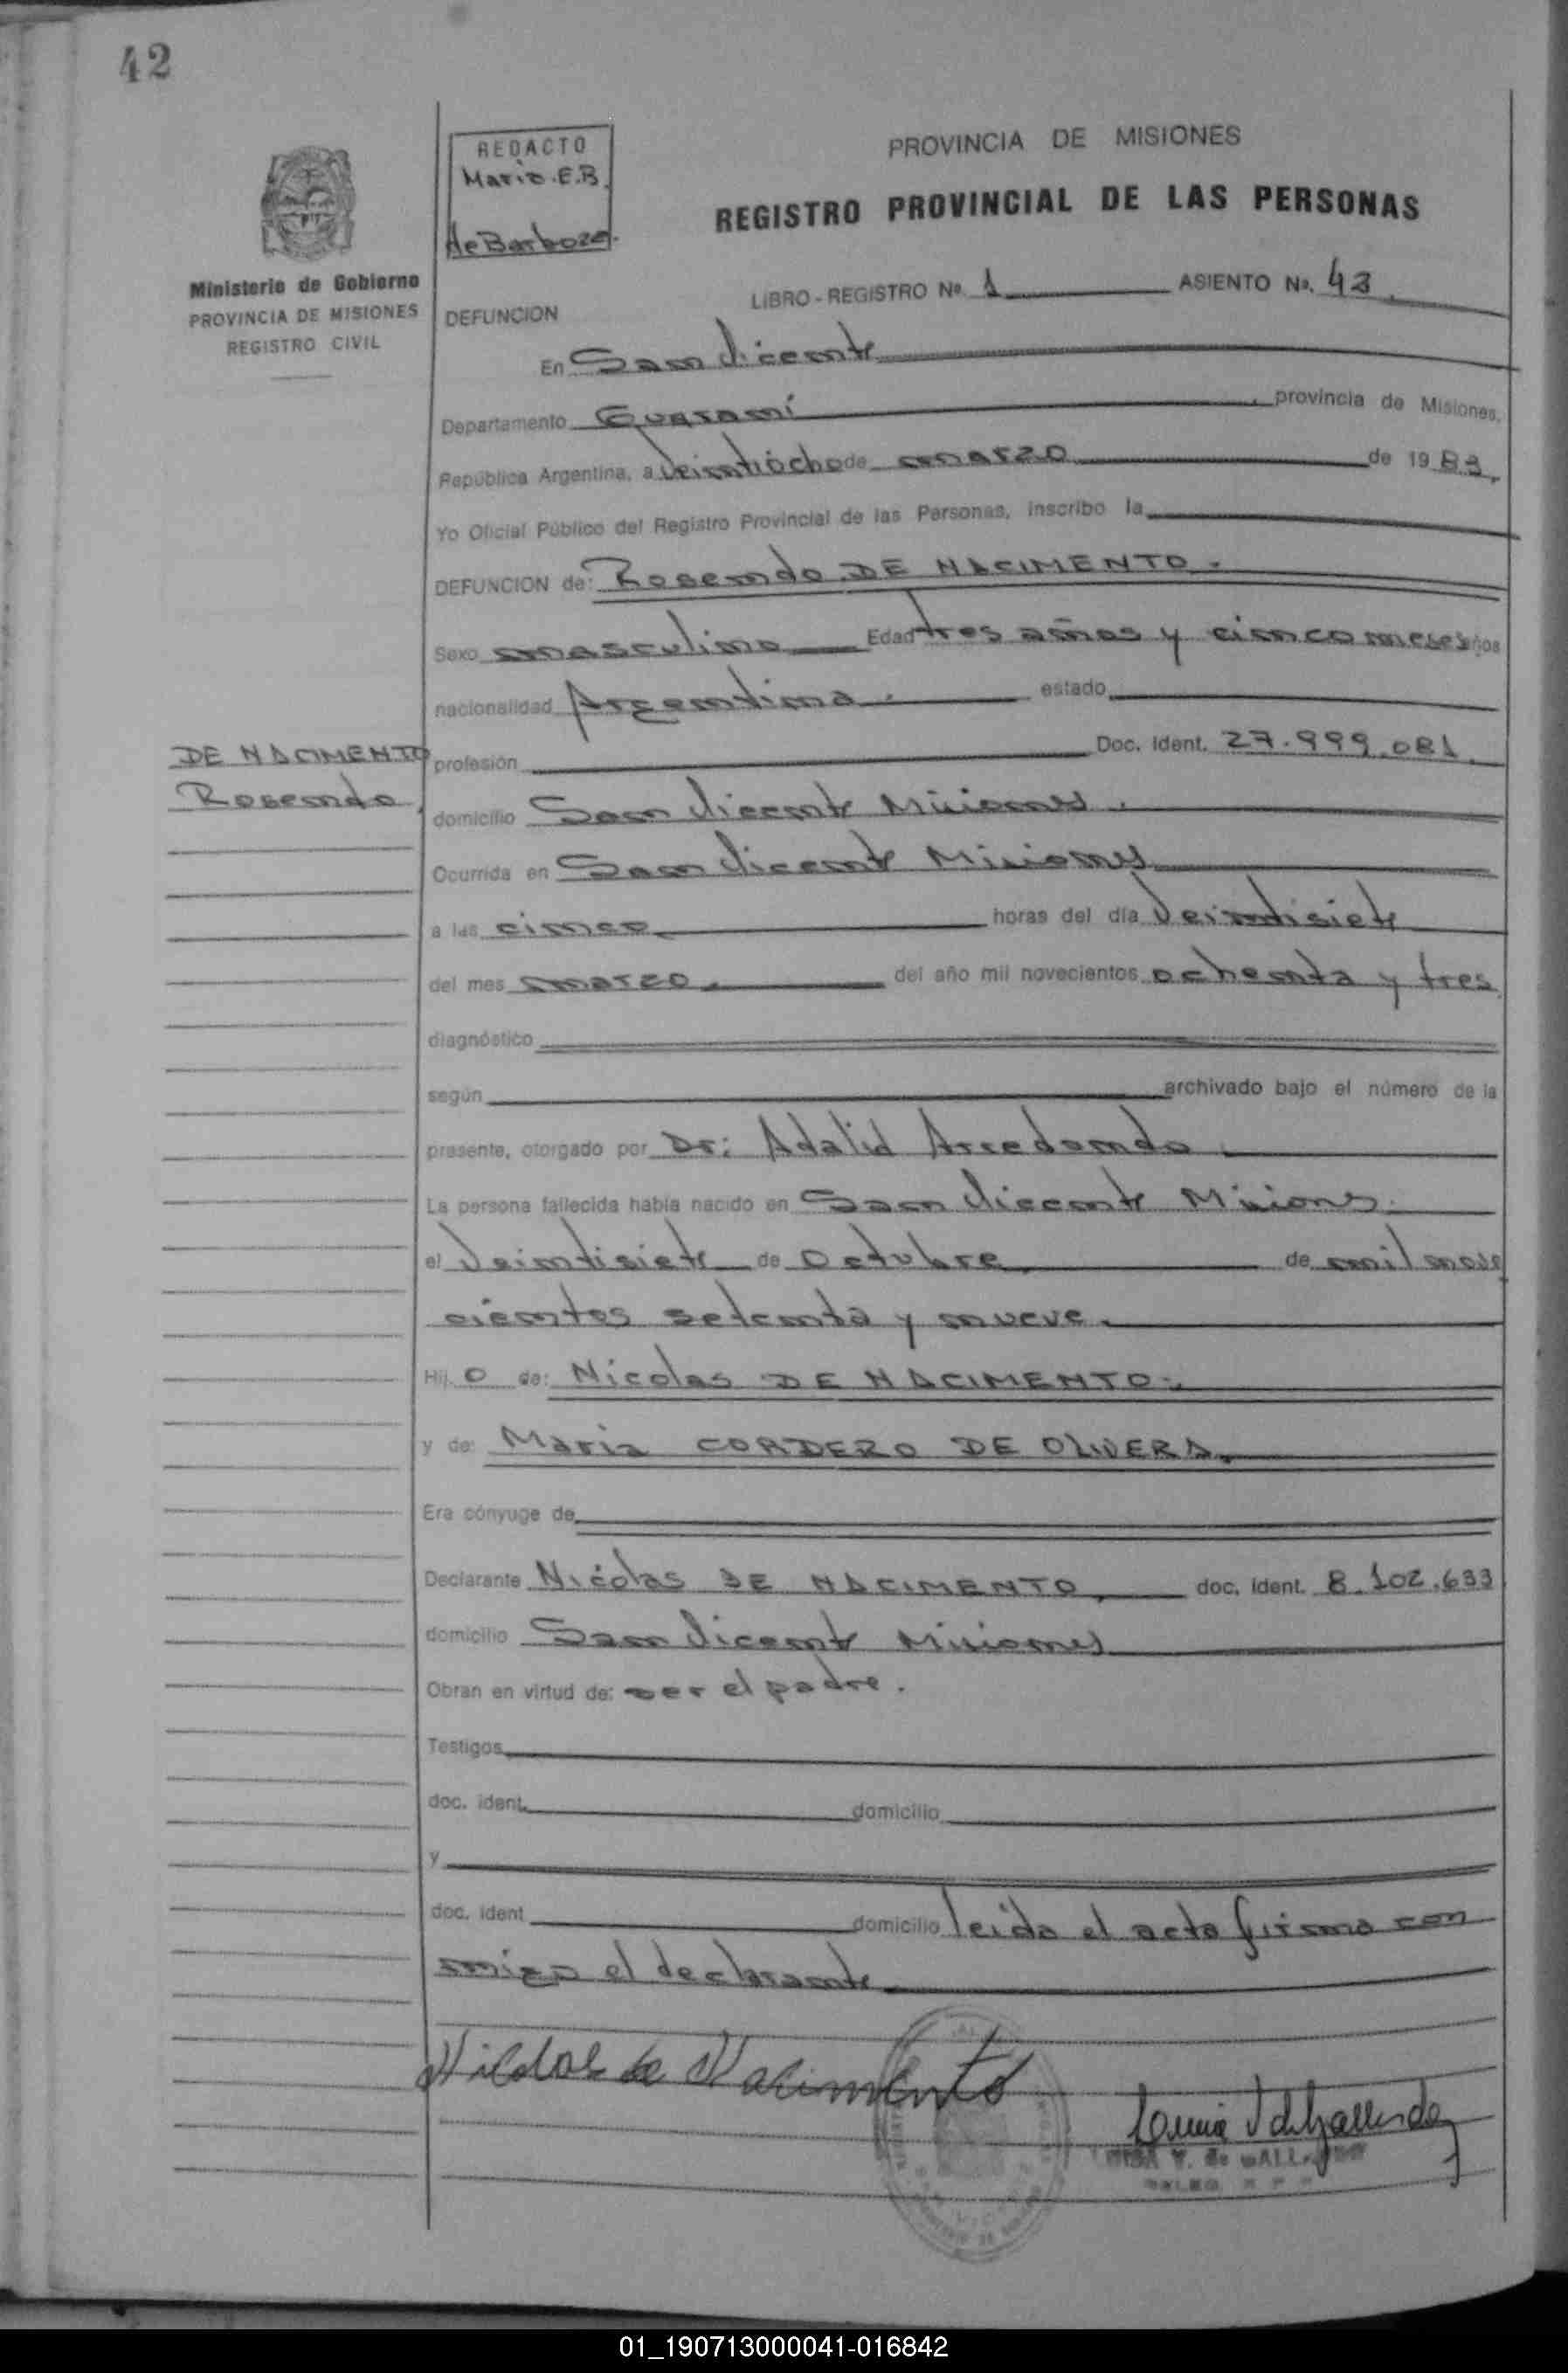 42
REDACTO
Mario.E.B.
de Barboza.
PROVINCIA DE MISIONES
REGISTRO PROVINCIAL DE LAS PERSONAS
Ministerio de Gobierno
PROVINCIA DE MISIONES
REGISTRO CIVIL
LIBRO - REGISTRO Nº 1 ASIENTO Nº. 43
DEFUNCION
En San Vicente
Departamento Guaraní, provincia de Misiones,
República Argentina, a Veintiocho de marzo de 1983,
Yo Oficial Público del Registro Provincial de las Personas, inscribo la
DEFUNCION de: Rosendo DE NACIMENTO.
Sexo masculino Edad tres años y cinco meses años
nacionalidad Argentina. estado
DE NACIMENTO
Rosendo
profesión Doc. Ident. 27.999.081
domicilio San Vicente Misiones.
Ocurrida en San Vicente Misiones
a las cinco horas del día Veintisiete
del mes marzo. del año mil novecientos ochenta y tres
diagnóstico
según archivado bajo el número de la
presente, otorgado por Dr: Adalid Arredondo
La persona fallecida había nacido en San Vicente Misiones.
el Veintisiete de Octubre de mil nove
cientos setenta y nueve.
Hij o de: Nicolas DE NACIMENTO.
y de: Maria CORDERO DE OLIVERA.
Era cónyuge de
Declarante Nicolas DE NACIMENTO doc. Ident. 8.102.633
domicilio San Vicente Misiones
Obran en virtud de: ser el padre.
Testigos
doc. ident. domicilio
y
doc. ident domicilio leida el acta firma con
migo el declarante
Nicolas de Nacimento
01_190713000041-016842